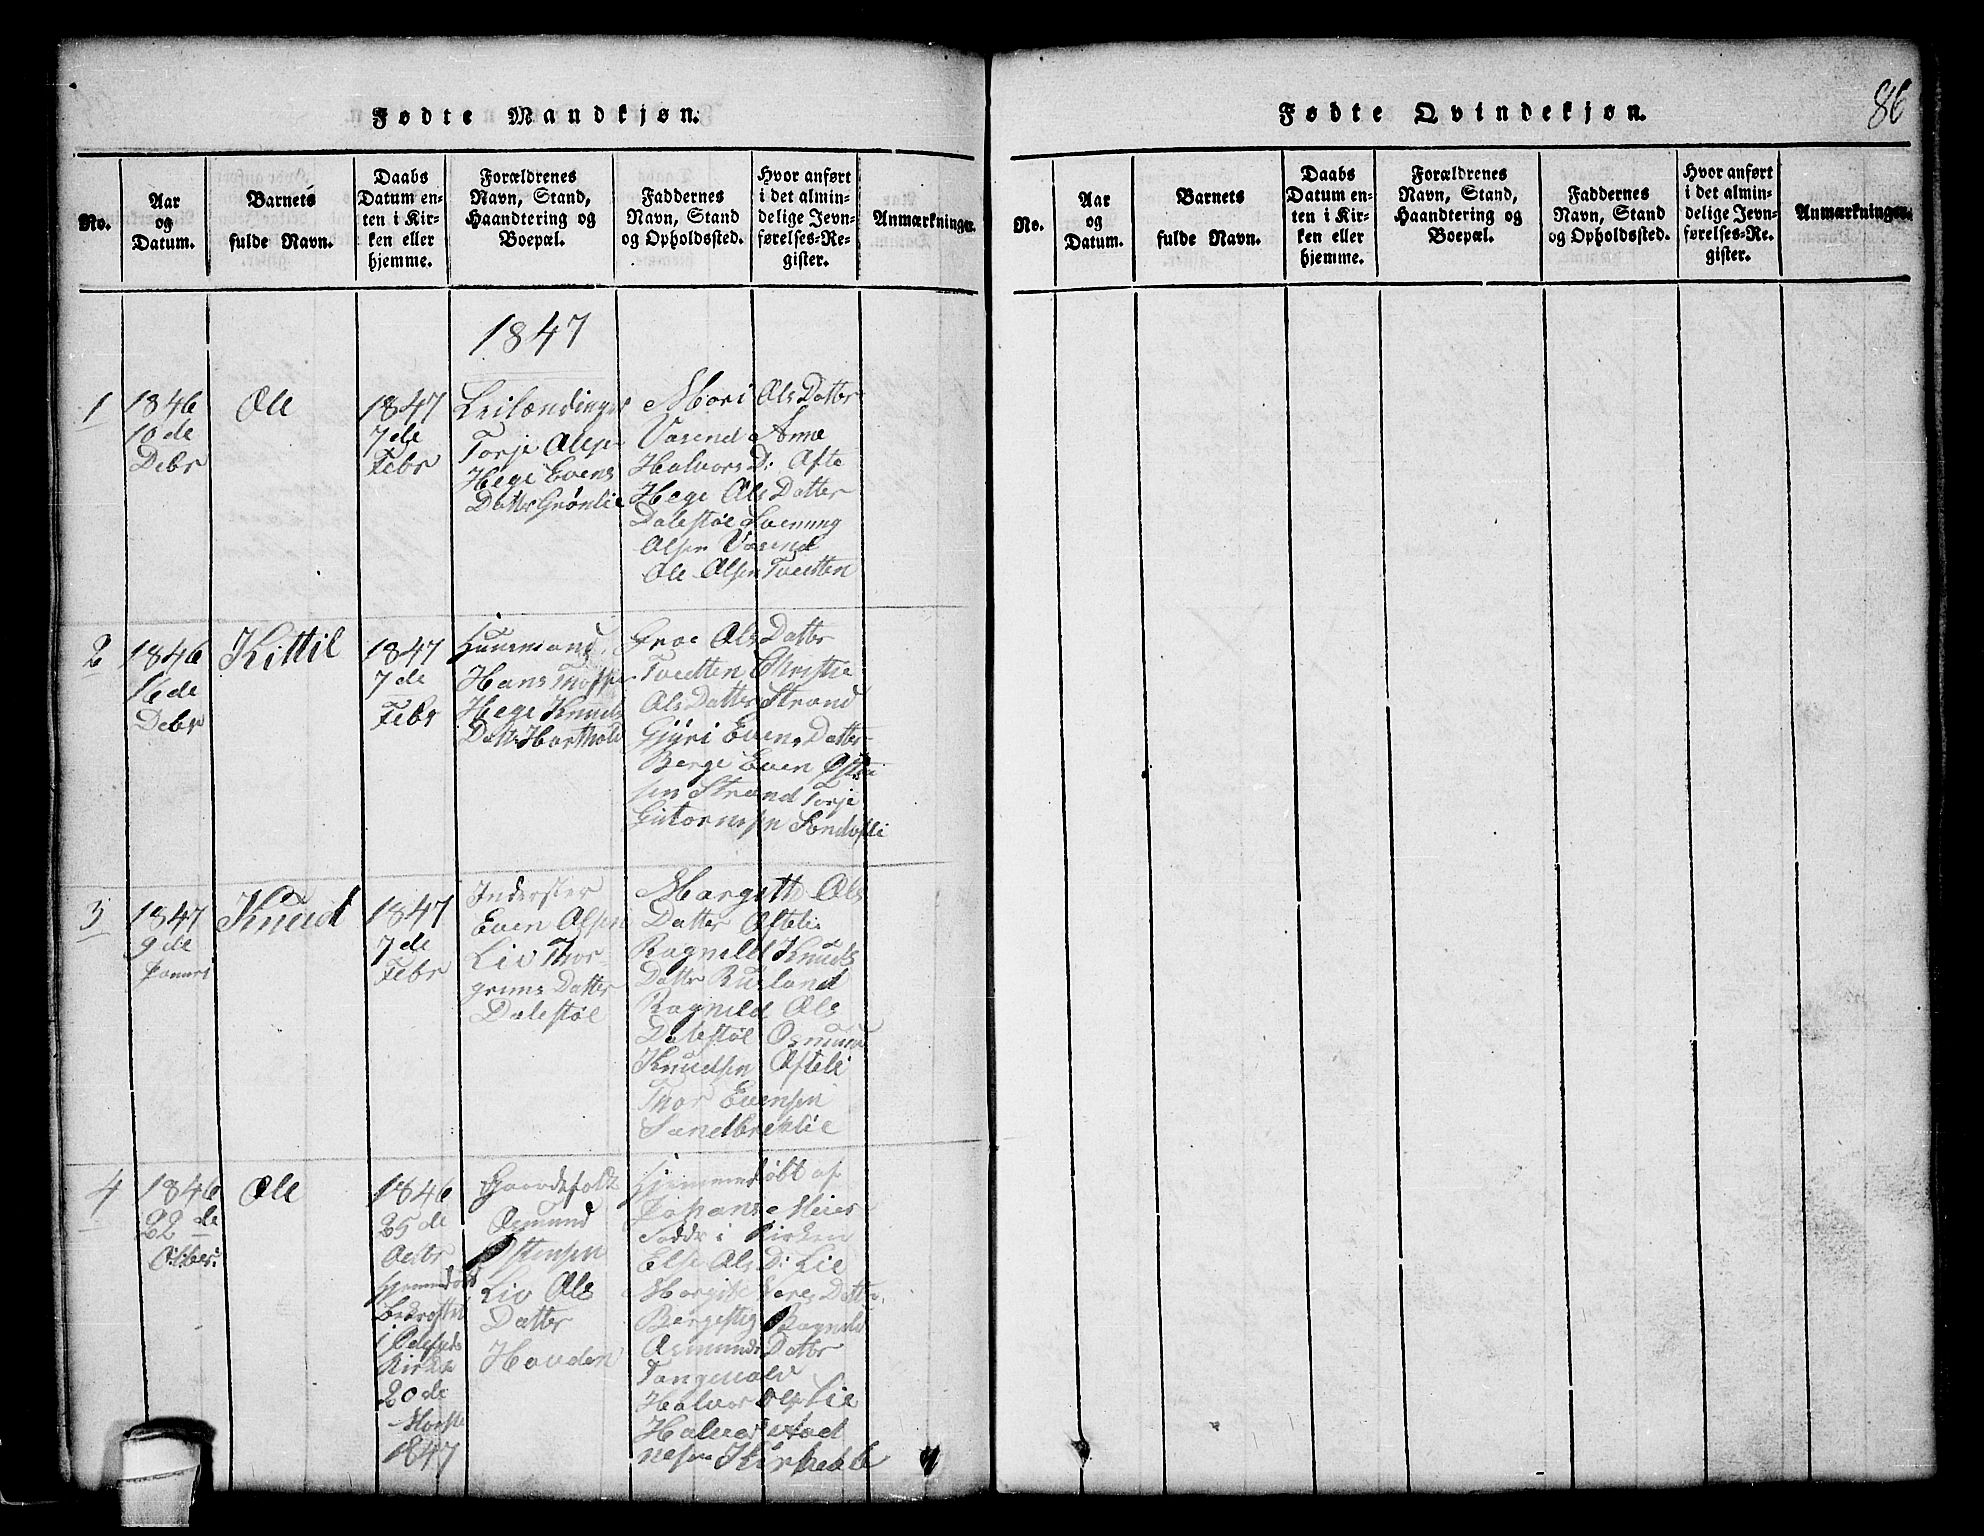 Fødte Mandkjøn.
No.
Aar
og
Datum.
Barnets
fulde Navn.
Daabs
Datum en-
ten i Kir-
ken eller
hjemme.
Forældrenes
Navn, Stand,
Haandtering og
Boepæl.
Faddernes
Navn, Stand
og Opholdssted.
Hvor anført
i det almin-
delige Jevn-
førelses-Re-
gister.
Anmærkninger.
1847
1
1846
10 de
Debr
Ole
1847
7 de
Febr
Leilændinger
Torje Olsen
Hege Evens
Datter Grønlie
Mari Ols Datter
Vasend Anne
Halvors D: Afte
Hege Ols Datter
Dalestøl Svenung
Olsen Vasend
Ole Olsen Tveitten
2
1846
16 de
Debr
Kittil
1847
7 de
Febr
Huusmand
Hans
Hege Knuds
Datter
Groe Ols Datter
Tveitten Christie
Ols Datter Strand
Gjyri Evens Datter
Berge Even
sen Strand Torje
Gutormsen
3
1847
9 de
Knud
1847
7 de
Febr
Inderster
Even Olsen
Liv Thor-
grims Datter
Dalestøl
Margith Ols
Datter Aftelie
Ragnild Knuds
Datter Rueland
Ragnild Ols
Dalestøl Osmund
Knudsen Aftelie
Thor Evensen
Sandbreklie
4
1846
22 de
Octber:
Ole
1846
25 de
Octbr
Hjemmedøbt
Bekræftet
i
Kirke
20 de
1847
Gaardefolk
Osmund
Østensen
Liv Ols
Datter
Houden
Hjemmedøbt af
Johans Meier
Faddr i Kirken
Else Ols D: Lie
Margit Datter
Bergestig Ragnild
Osmunds Datter
Halvor Ols Lie
Halvor Aad
nesen
Fødte Qvindekjøn.
86
No.
Aar
og
Datum.
Barnets
fulde Navn.
Daabs
Datum en-
ten i Kir-
ken eller
hjemme.
Forældrenes
Navn, Stand,
Haandtering og
Boepæl.
Faddernes
Navn, Stand
og Opholdssted.
Hvor anført
i det almin-
delige Jevn-
førelses-Re-
gister.
Anmærkninger.